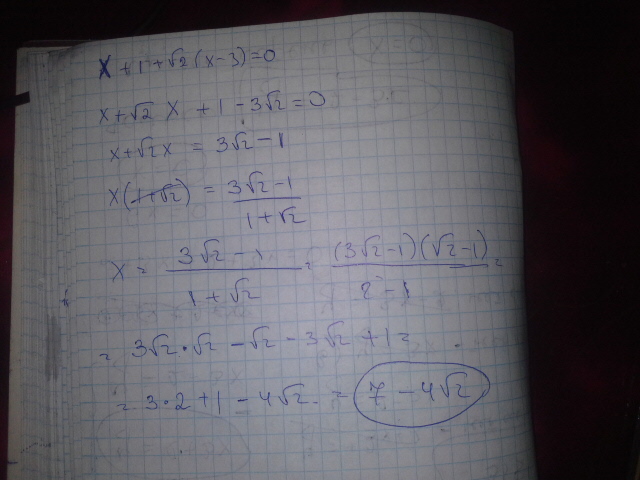 x + 1 + √2 (x - 3) = 0
x + √2 x + 1 - 3√2 = 0
x + √2 x = 3√2 - 1
x (1 + √2) = (3√2 - 1) / (1 + √2)
x = (3√2 - 1) / (1 + √2) = (3√2 - 1)(√2 - 1) / (2 - 1) =
= 3√2 · √2 - √2 - 3√2 + 1 =
= 3·2 + 1 - 4√2 = 7 - 4√2